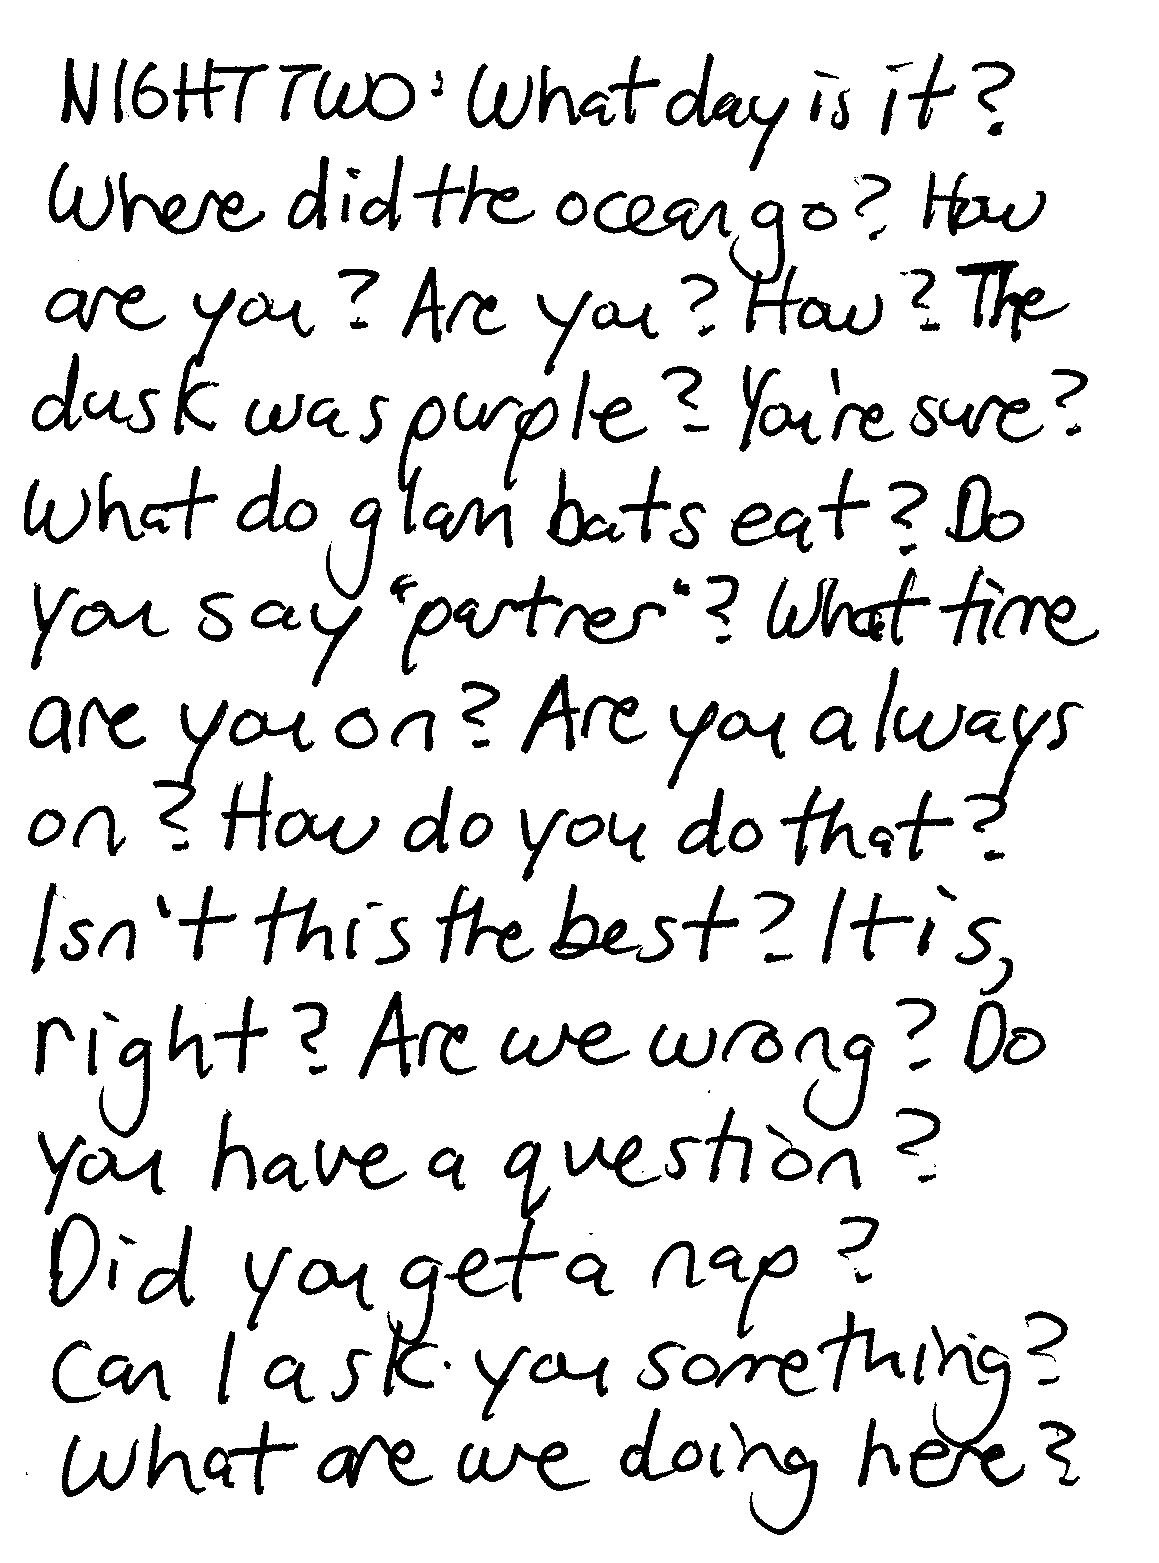 NIGHT TWO: What day is it?
Where did the ocean go? How
are you? Are you? How? The
dusk was purple? You're sure?
What do glam bats eat? Do
you say "partner"? What time
are you on? Are you always
on? How do you do that?
Isn't this the best? It is,
right? Are we wrong? Do
you have a question?
Did you get a nap?
Can I ask you something?
What are we doing here?